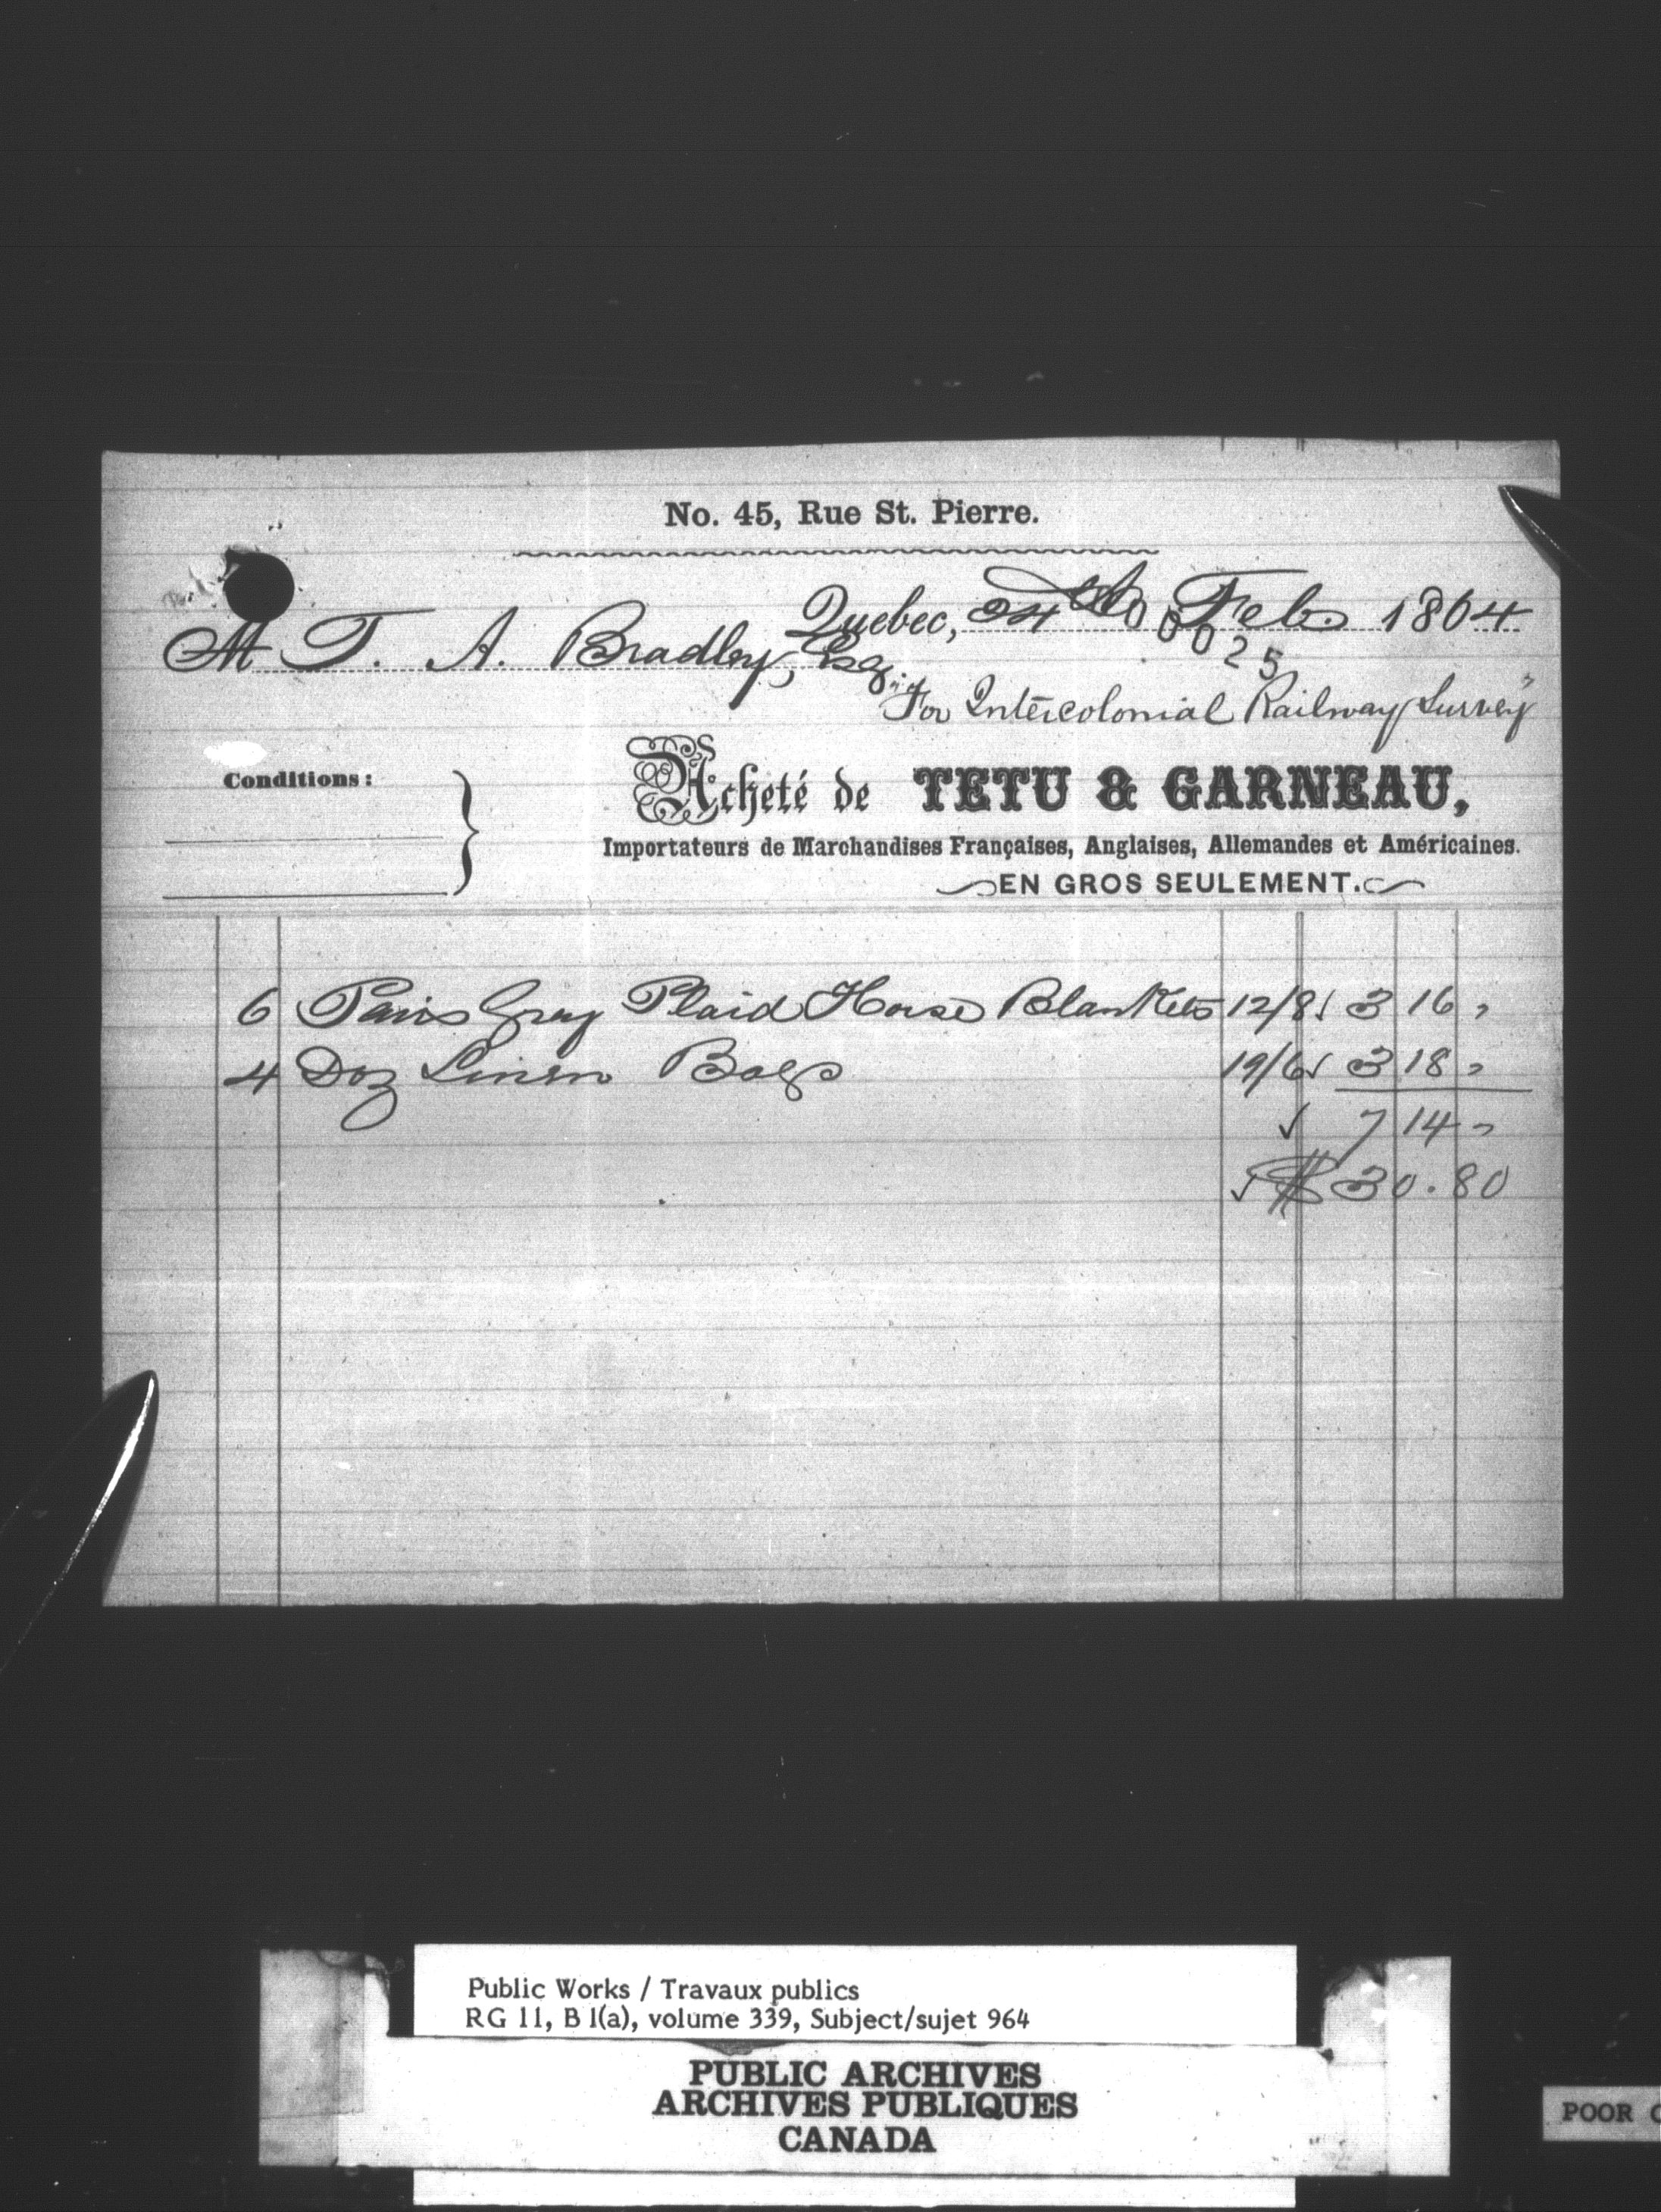 No. 45, Rue St. Pierre.
Quebec, 24th Feb. 1864
000025
M T. A. Bradley, Esq.
"For Intercolonial Railway Survey"
Conditions:
Acheté de TETU & GARNEAU,
Importateurs de Marchandises Françaises, Anglaises, Allemandes et Américaines.
EN GROS SEULEMENT.
6 Pairs Gray Plaid Horse Blankets 12/8 ✓ 3 16 "
4 Doz Linen Bags 19/6 ✓ 3 18 "
✓ 7 14 "
✓ $ 30.80
Public Works / Travaux publics
RG 11, B 1(a), volume 339, Subject/sujet 964
PUBLIC ARCHIVES
ARCHIVES PUBLIQUES
CANADA
POOR